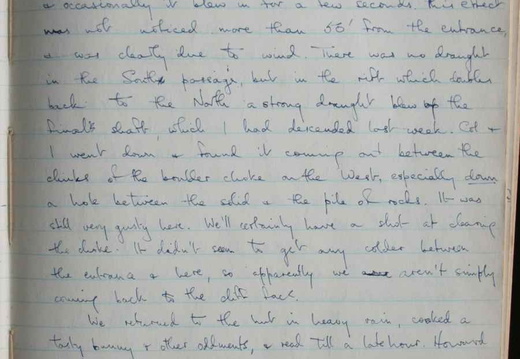 & occasionally it blew in for a few seconds. This effect
was not noticed more than 50' from the entrance,
& was clearly due to wind. There was no draught
in the South passage, but in the rift which doubles
back to the North a strong draught blew up the
final shaft, which I had descended last week. Col &
I went down & found it coming out between the
chinks of the boulder choke on the West, especially down
a hole between the solid & the pile of rocks. It was
still very gusty here. We'll certainly have a shot at clearing
the choke. It didn't seem to get any colder between
the entrance & here, so apparently we aren't simply
coming back to the cliff face.
We returned to the hut in heavy rain, cooked a
tasty bunny & other oddments, & read till a late hour. Howard